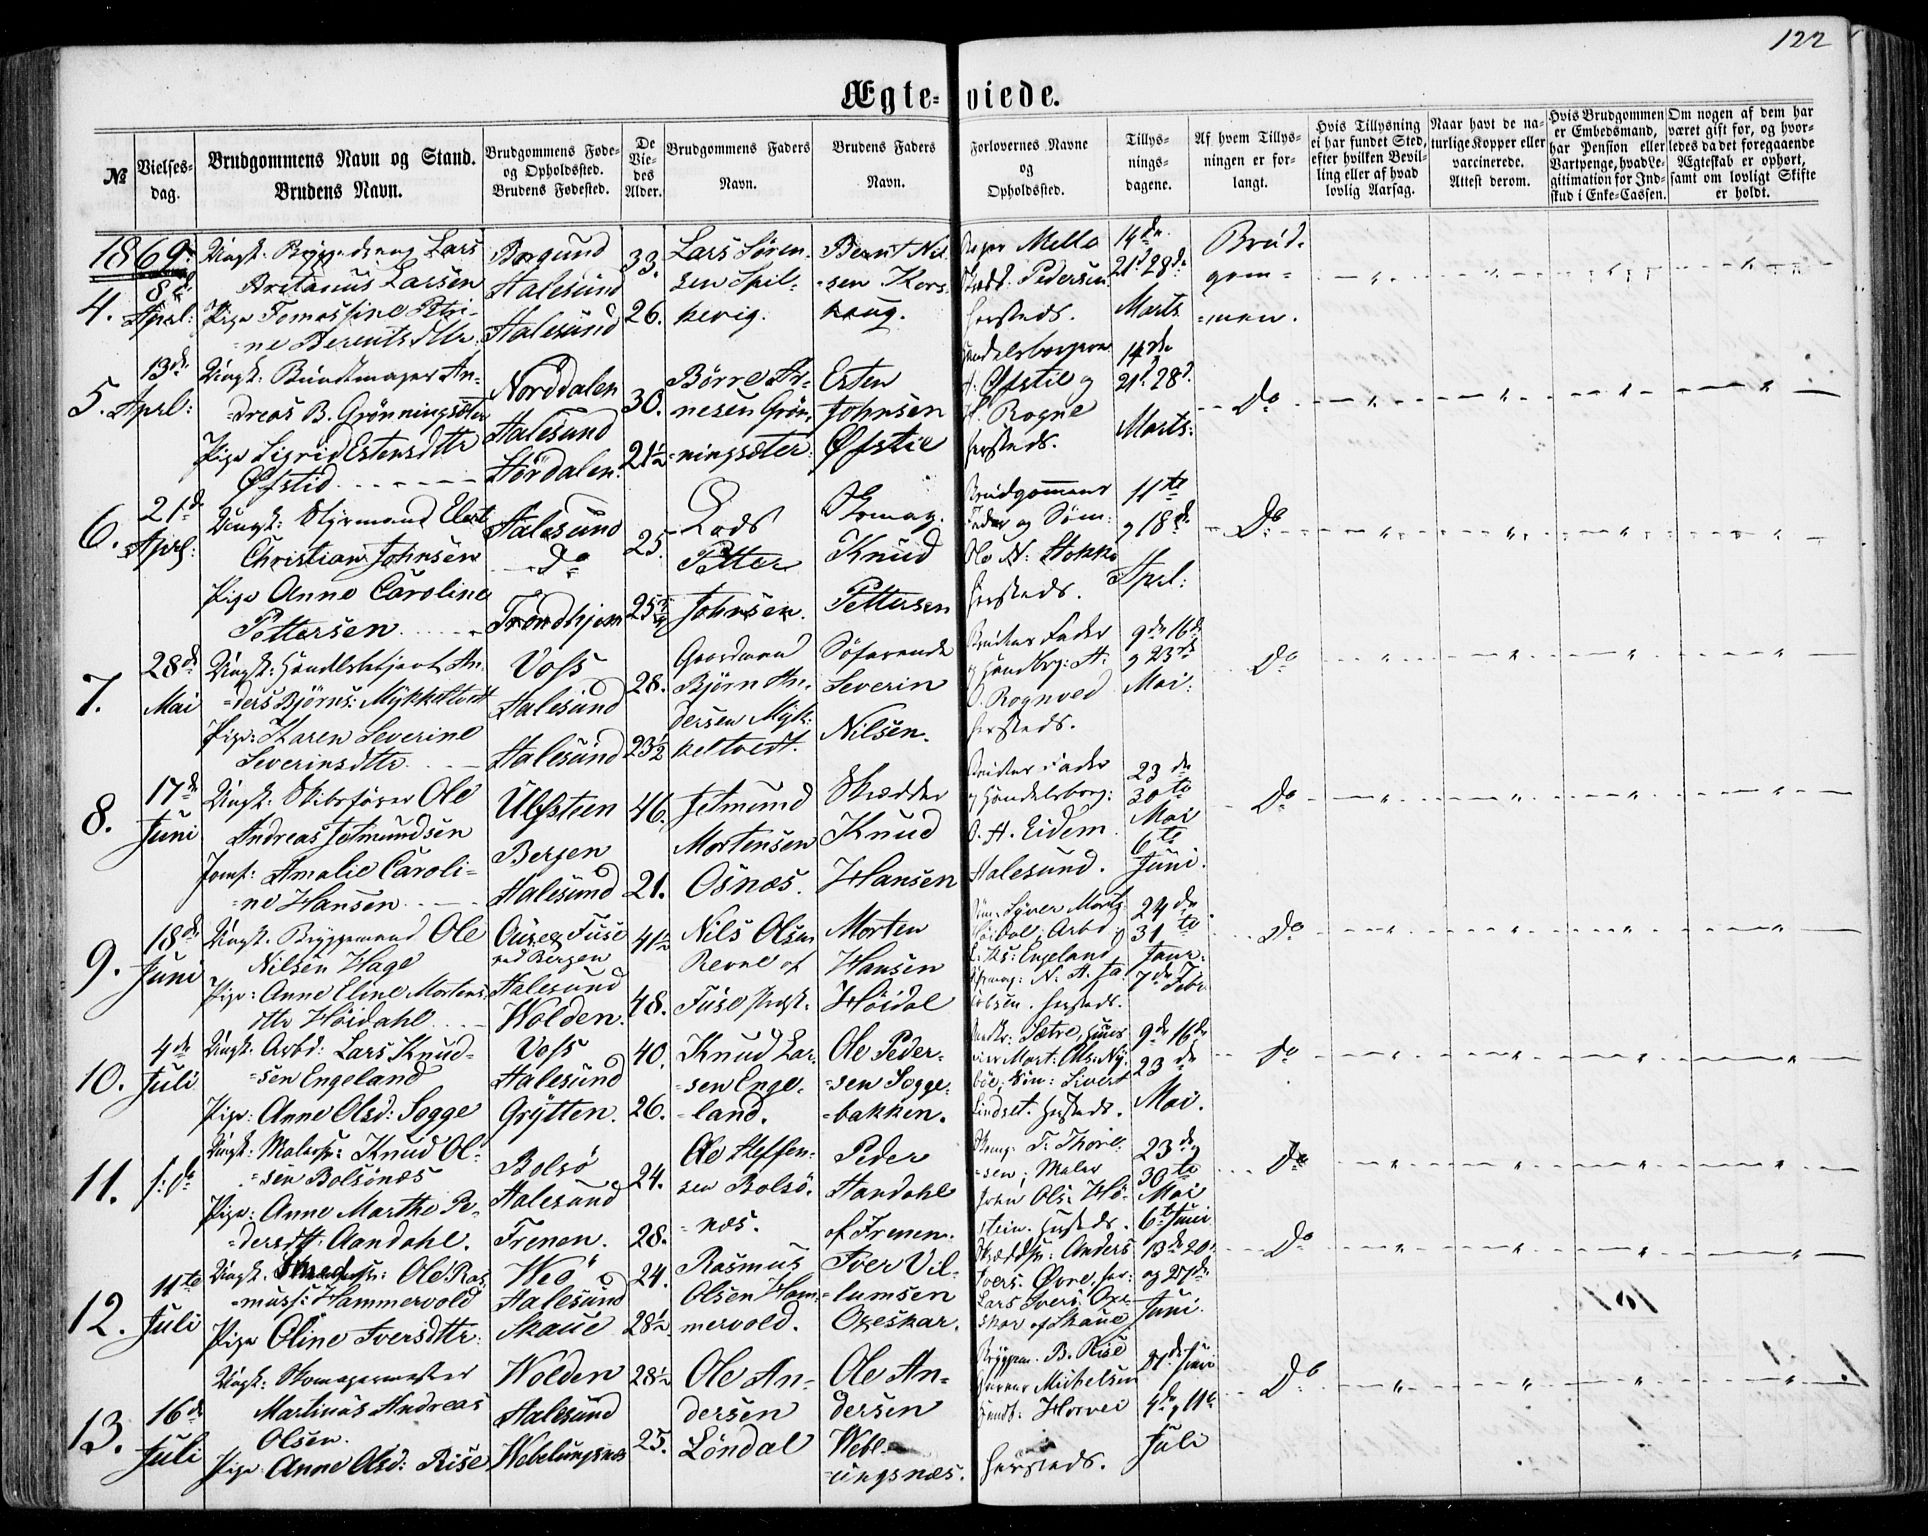 122
Ægte-viede.
№
Vielses-
dag.
Brudgommens Navn og Stand.
Brudens Navn.
Brudgommens Føde-
og Opholdssted.
Brudens Fødested.
De
Vie-
des
Alder.
Brudgommens Faders
Navn.
Brudens Faders
Navn.
Forlovernes Navne
og
Opholdssted.
Tillys-
nings-
dagene.
Af hvem Tillys-
ningen er for-
langt.
Hvis Tillysning
ei har fundet Sted,
efter hvilken Bevil-
ling eller af hvad
lovlig Aarsag.
Naar havt de na-
turlige Kopper eller
vaccinerede.
Attest derom.
Hvis Brudgommen
er Embedsmand,
har Pension eller
Vartpenge, hvad Le-
gitimation for Ind-
skud i Enke-Cassen.
Om nogen af dem har
været gift før, og hvor-
ledes da det foregaaende
Ægteskab er ophørt,
samt om lovligt Skifte
er holdt.
1869.
4.
8de
April:
Ungk. Lars
Larsen
Pige Tomassine Petri-
ne Berentsdttr.
Borgund
Aalesund
Aalesund
33.
26.
Lars Sören-
sen Spil-
kevig.
Bernt Nil-
sen Kors-
haug.
Mello
Pedersen
hersteds.
14de
21de 28de
Marts
Brud-
gom-
men.
5.
13de
Aprl:
Ungk: Buntmager An-
dreas B. Grönningsæter
Pige Sigrid Estensdttr
Øfstid
Norddalen
Aalesund
Størdalen.
30.
21½
Børre Ar-
nesen Grön-
ningsæter.
Esten
Johnsen
Øfstie
Øfstie og
Rogne
hersteds.
14de
21de 28de
Marts:
Do
6.
21de
Aprl:
Ungk: Styrmand Elert
Christian Johnsen
Pige Anne Caroline
Pettersen
Aalesund
do
Trondhjem
25.
25
Lods
Petter
Johnsen.
Skomag.
Knud
Pettersen
Brudgommens
Fader og Söm:
Ole N: Stokke
hersteds.
11te
og 18de
Aprl:
Do
7.
28de
Mai
Ungk: Handelsbetjent An-
ders Björns: Mykkeltvedt
Pige: Karen Severine
Severinsdttr
Voss
Aalesund
Aalesund
28.
23½
Gaardmand
Björn An-
dersen Myk-
keltvedt.
Söfarende
Severin
Nilsen.
Brudens Fader
og Handbrg: A.
O. Rognved
hersteds.
9de 16de
og 23de
Mai:
Do
8.
17de
Juni
Ungk: Skibsfører Ole
Andreas Jetmundsen
Jomf: Amalie Caroli-
ne Hansen
Ulfstien
Bergen
Aalesund
46.
21.
Jetmund
Mortensen
Osnæs.
Skrædder
Knud
Hansen
Brudens Fader
og Handelsborg:
O. A. Eidem.
Aalesund.
23de
30te
Mai
6te
Juni.
Do
9.
18de
Juni
Ungk. Bryggemand Ole
Nilsen Hage
Pige: Anne Eline Mortens
dttr Höidahl
Fuse
ved Bergen
Aalesund
Volden.
41½
48.
Nils Olsen
Revne af
Fuse
Morten
Hansen
Höidal
Syver Mortz:
Höidal; Arbd:
L. Ks: Engeland
Skomag: N. A. Ja-
cobsen. hersteds.
24de
31te
Janr:
7de Febr
Do
10.
4de
Juli
Ungk: Arbd: Lars Knud-
sen Engeland
Pige: Anne Olsd: Sogge
Voss
Aalesund
Grytten.
40.
26.
Knud Lar-
sen Enge-
land.
Ole Peder-
sen Sogge-
bakken.
Sætre,
Mart: Ols: Ny-
böe; Sivert
Lindset. hersteds.
9de 16de
23de
Mai.
Do
11.
s: D:
Ungk: Malersv: Knud Ol-
sen Bolsönæs
Pige: Anne Marthe Pe-
dersdtt: Aandahl.
Bolsö
Aalesund
Frenen.
24.
28.
Ole Steffen-
sen Bolsö-
næs.
Peder
Aandahl
af Frenen.
T: Thorl-
sen; Maler
John Ols: Hö-
stein. hersteds.
23de
30te
Mai
6te Juni
Do
12.
11te
Juli
Ungk. Smedsv: Ole Ras-
muss: Hammervold
Pige Oline Iversdttr:
Veö
Aalesund
Skaue
24.
28½
Rasmus
Olsen Ham-
mervold.
Iver Vil-
lumsen
Oxeskar.
Skrædsv: Anders
Ivers: Øvre, her:
Lars Ivers: Oxe-
skar af Skaue
13de 20de
og 27de
Juni.
Do
13.
16de
Juli
Ungk: Skomagermester
Martinus Andreas
Olsen.
Pige: Anne Olsd: Rise
Volden
Aalesund
Veblungsnæs
28½
25.
Ole An-
dersen
Löndal
Ole An-
dersen
Vebl-
ungsnæs.
B. Rise
Michelsen
Horvei
hersteds.
27de Juni
4de og 11te
Juli
Do